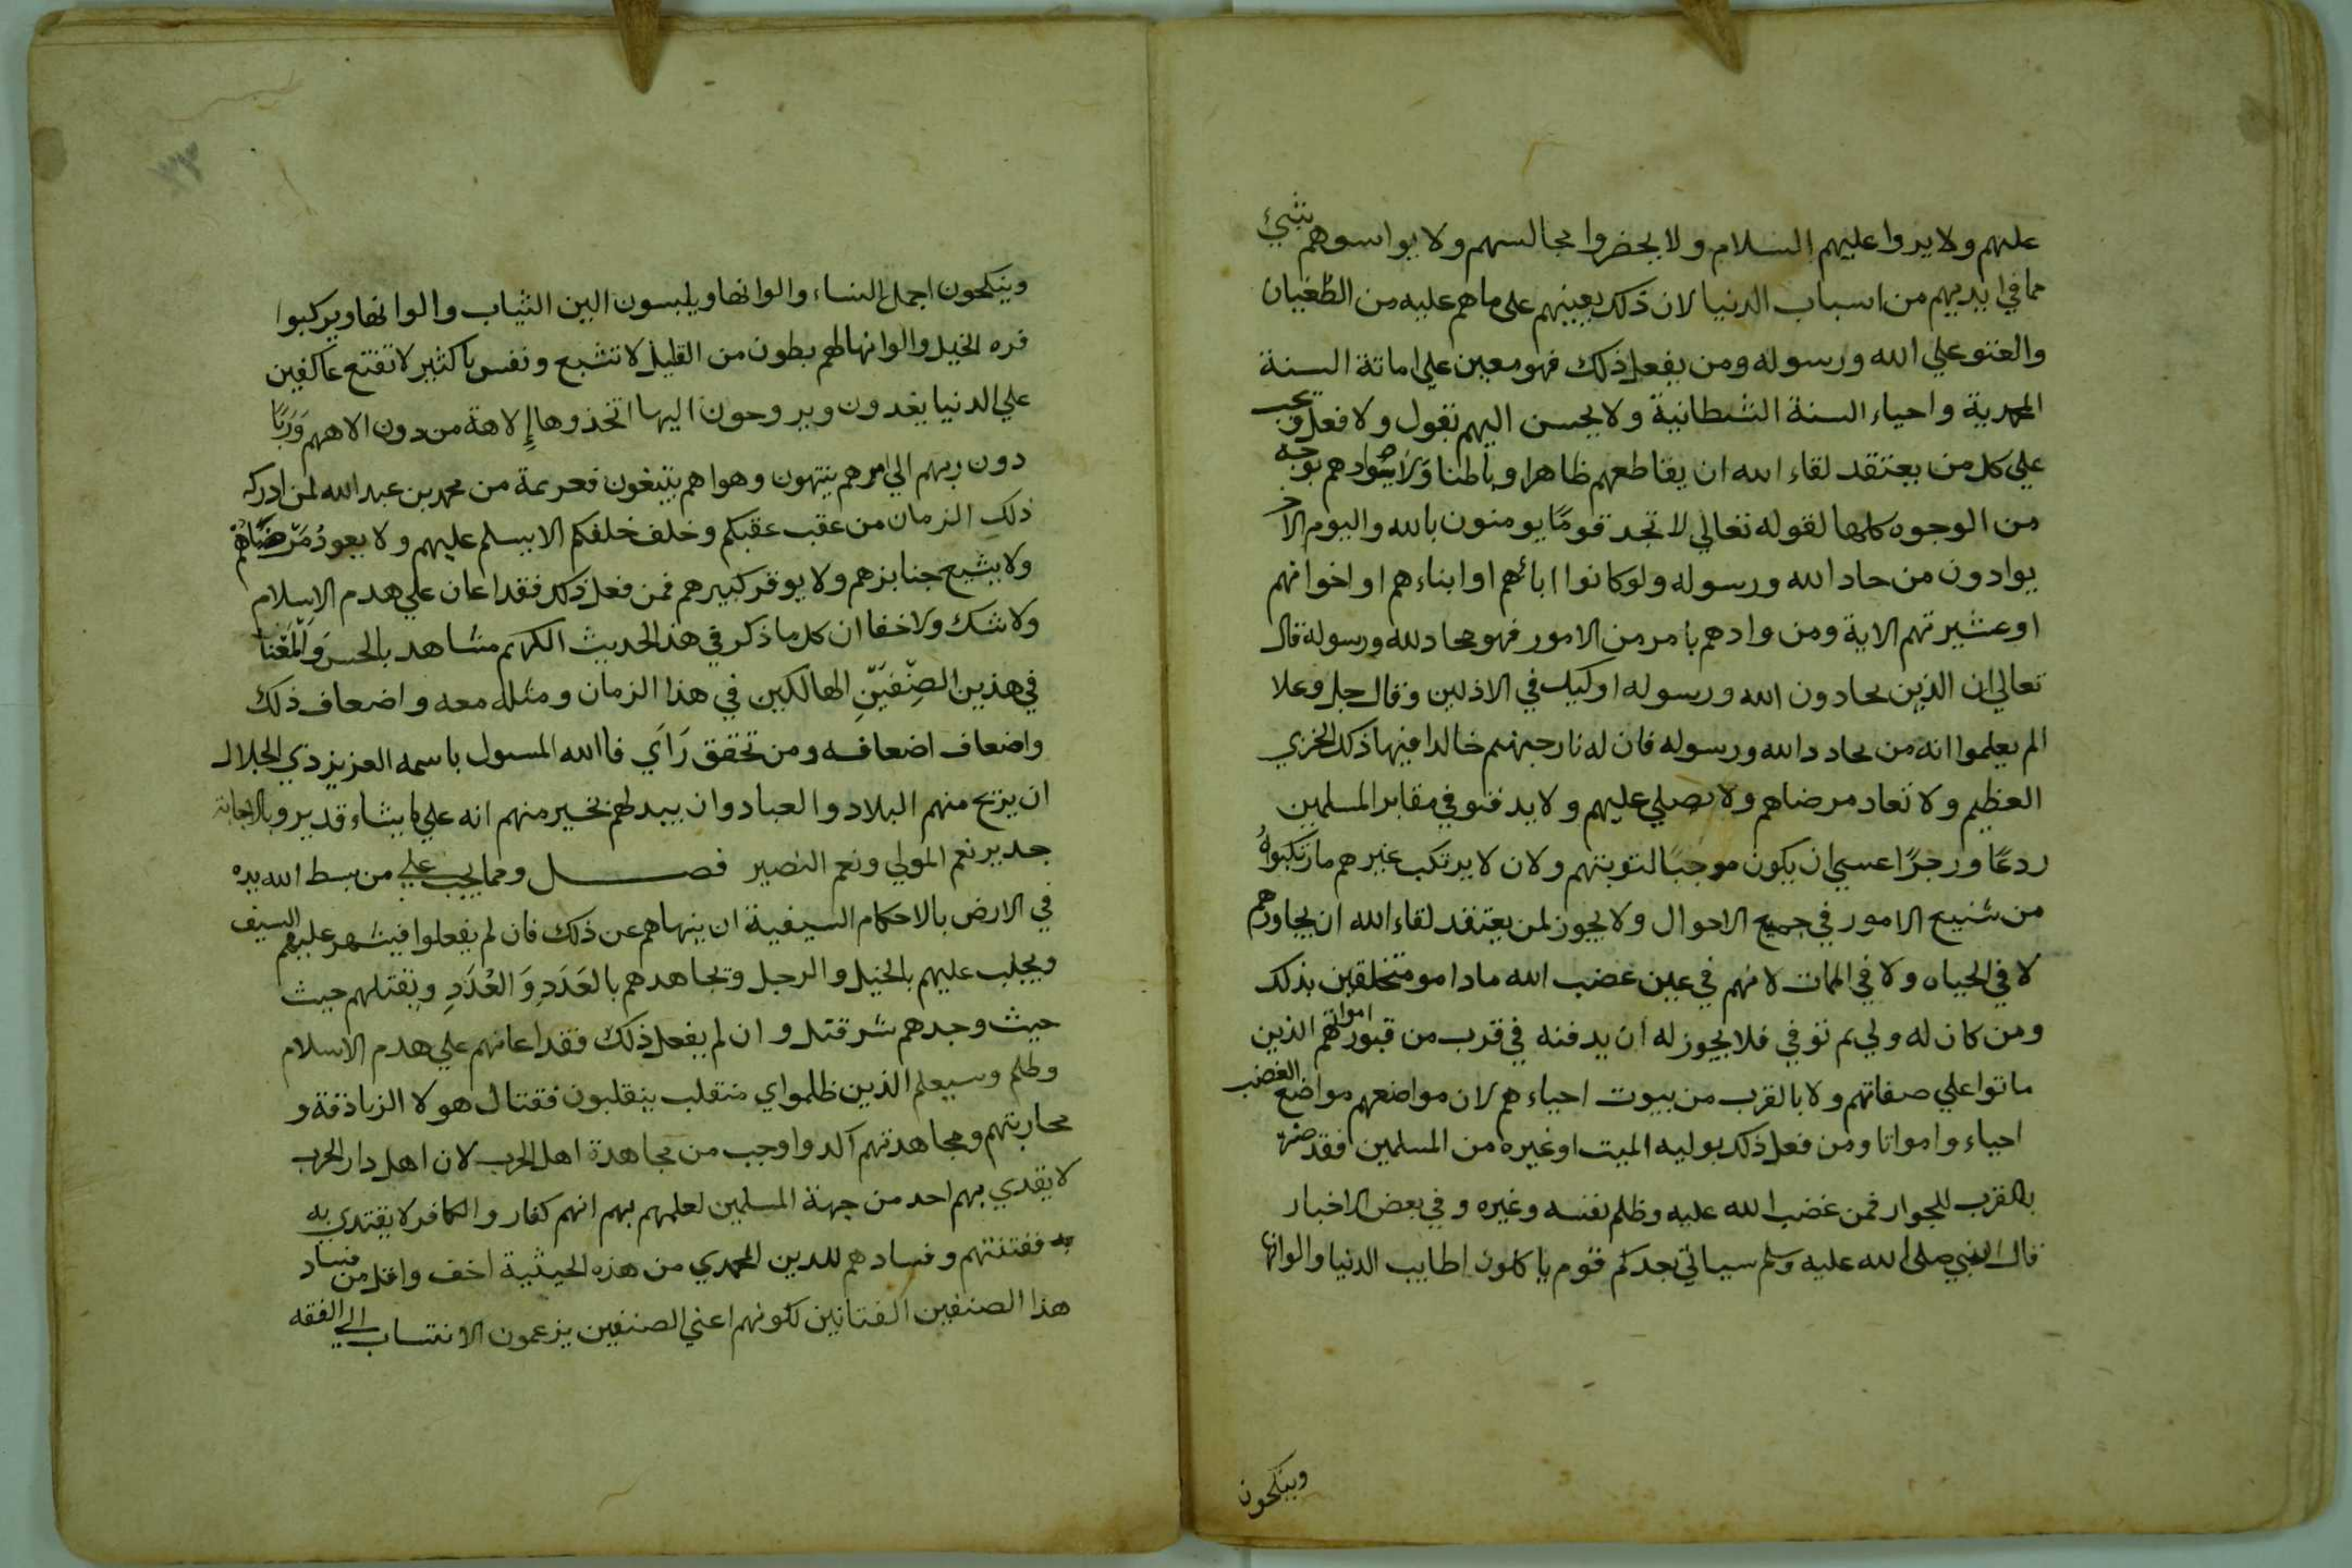 عليهم ولا يردوا عليهم السلام ولا يحضروا مجالسهم ولا يواسوهم بشيئ
مما في ايديهم من اسباب الدنيا لان ذلك يعينهم على ماهم عليه من الطغيان
والعتو علي الله ورسوله ومن يفعل ذلك فهو معين علي اماتة السنة
المحمدية واحياء السنة الشطانية ولا يحسن اليهم بقول ولا فعل ويجب
علي كل من يعتقد لقاء الله ان يقاطعهم ظاهرا وباطنا ولا يوادهم بوجه
من الوجوه كلها لقوله تعالي لا تجد قومًا يومنون بالله واليوم الاخر
يوادون من حاد الله ورسوله ولو كانوا اباءهم او ابناءهم او اخوانهم
او عشيرتهم الاية ومن وادهم بامر من الامور فهو محاد لله ورسوله قال
تعالي ان الذين يحادون الله ورسوله اوليك في الاذلين وقال جل وعلا
الم يعلموا انه من يحادد الله ورسوله فان له نار جهنم خالدا فيها ذلك الخزي
العظيم ولا تعاد مرضاهم ولا يصلي عليهم ولا يدفنو في مقابر المسلمين
ردعًا وزجرًا عسي ان يكون موجبًا لتوبتهم ولان لا يرتكب غيرهم ما ارتكبوا
من شنيع الامور في جميع الاحوال ولا يجوز لمن يعتقد لقاء الله ان يجاورهم
لا في الحياه ولا في الممات لانهم في عين غضب الله ما دامو متخلقين بذلك
ومن كان له ولي ثم توفي فلا يجوز له ان يدفنه في قرب من قبور امواتهم الذين
ماتوا علي صفاتهم ولا بالقرب من بيوت احياءهم لان مواضعهم مواضع الغضب
احياء وامواتا ومن فعل ذلك بوليه الميت او غيره من المسلمين فقد ضره
بالقرب للجوار فمن غضب الله عليه وظلم نفسه وغيره وفي بعض الاخبار
قال النبي صلى الله عليه وسلم سيأتي بعدكم قوم ياكلون اطايب الدنيا والوانها
وينكحون
وينكحون اجمل النساء والوانها ويلبسون الين الثياب والوانها ويركبوا
فره الخيل والوانها لهم بطون من القليل لا تشبع ونفس باكثير لا تقنع عاكفين
علي الدنيا يغدون ويروحون اليها اتخذوها إلاهة من دون الاههم وربًا
دون ربهم الي امرهم ينتهون وهواهم يتبعون فعزيمة من محمد بن عبد الله لمن ادركه
ذلك الزمان من عقب عقبكم وخلف خلفكم الا يسلم عليهم ولا يعود مرضاهم
ولا يشيع جنايزهم ولا يوقر كبيرهم فمن فعل ذلك فقد اعان علي هدم الاسلام
ولا شك ولا خفا ان كل ما ذكر في هذا الحديث الكريم مشاهد بالحس والمعنا
في هذين الصنفين الهالكين في هذا الزمان ومثله معه واضعاف ذلك
واضعاف اضعافه ومن تحقق رأي فاالله المسول باسمه العزيز ذي الجلال
ان يزيح منهم البلاد والعباد وان يبدلهم بخير منهم انه علي ما يشاء قدير وبالاجابة
جدير نعم المولي ونعم النصير فصل ومما يجب علي من بسط الله يده
في الارض بالاحكام السيفية ان ينهاهم عن ذلك فان لم يفعلوا فيشهر عليهم السيف
ويجلب عليهم بالخيل والرجل ويجاهدهم بالعَدَدِ وَالعُدَدِ ويقتلهم حيث
حيث وجدهم شر قتل وان لم يفعل ذلك فقد اعانهم علي هدم الاسلام
وظلم وسيعلم الذين ظلموا اي منقلب ينقلبون فقتال هولا الزنادقة و
محاربتهم ومجاهدتهم آكد واوجب من مجاهدة اهل الحرب لان اهل دار الحرب
لا يقتدي بهم احد من جهة المسلمين لعلمهم بهم انهم كفار والكافر لا يقتدي به
به ففتنتهم وفسادهم للدين المحمدي من هذه الحيثية اخف واقل من فساد
هذا الصنفين الفتانين لكونهم اعني الصنفين يزعمون الانتساب الي الفقه